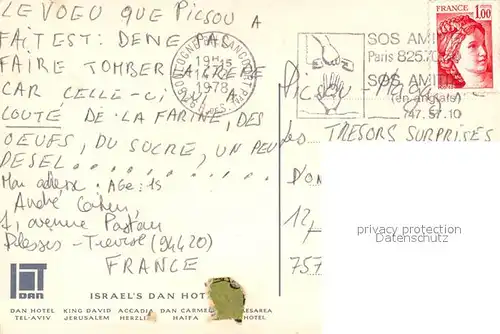 LE VOEU QUE PICSOU A
FAIT EST: DE NE PAS
FAIRE TOMBER LA CREPE
CAR CELLE-CI A
COUTÉ DE LA FARINE, DES
OEUFS, DU SUCRE, UN PEU
DE SEL..........
Mon adresse: AGE: 15
André
1, avenue
Plessis-Trevise (94420)
FRANCE
BOULOGNE
19H15
1978
FRANCE
1,00
SOS AMITIE
Paris 825.70
SOS AMITIE
(en anglais)
747.57.10
Picsou-
Les TRESORS SURPRISES
12,
757
privacy protection
Datenschutz
DAN
ISRAEL'S DAN HOT
DAN HOTEL KING DAVID ACCADIA DAN CARMEL CAESAREA
TEL-AVIV JERUSALEM HERZLI HAIFA HOTEL